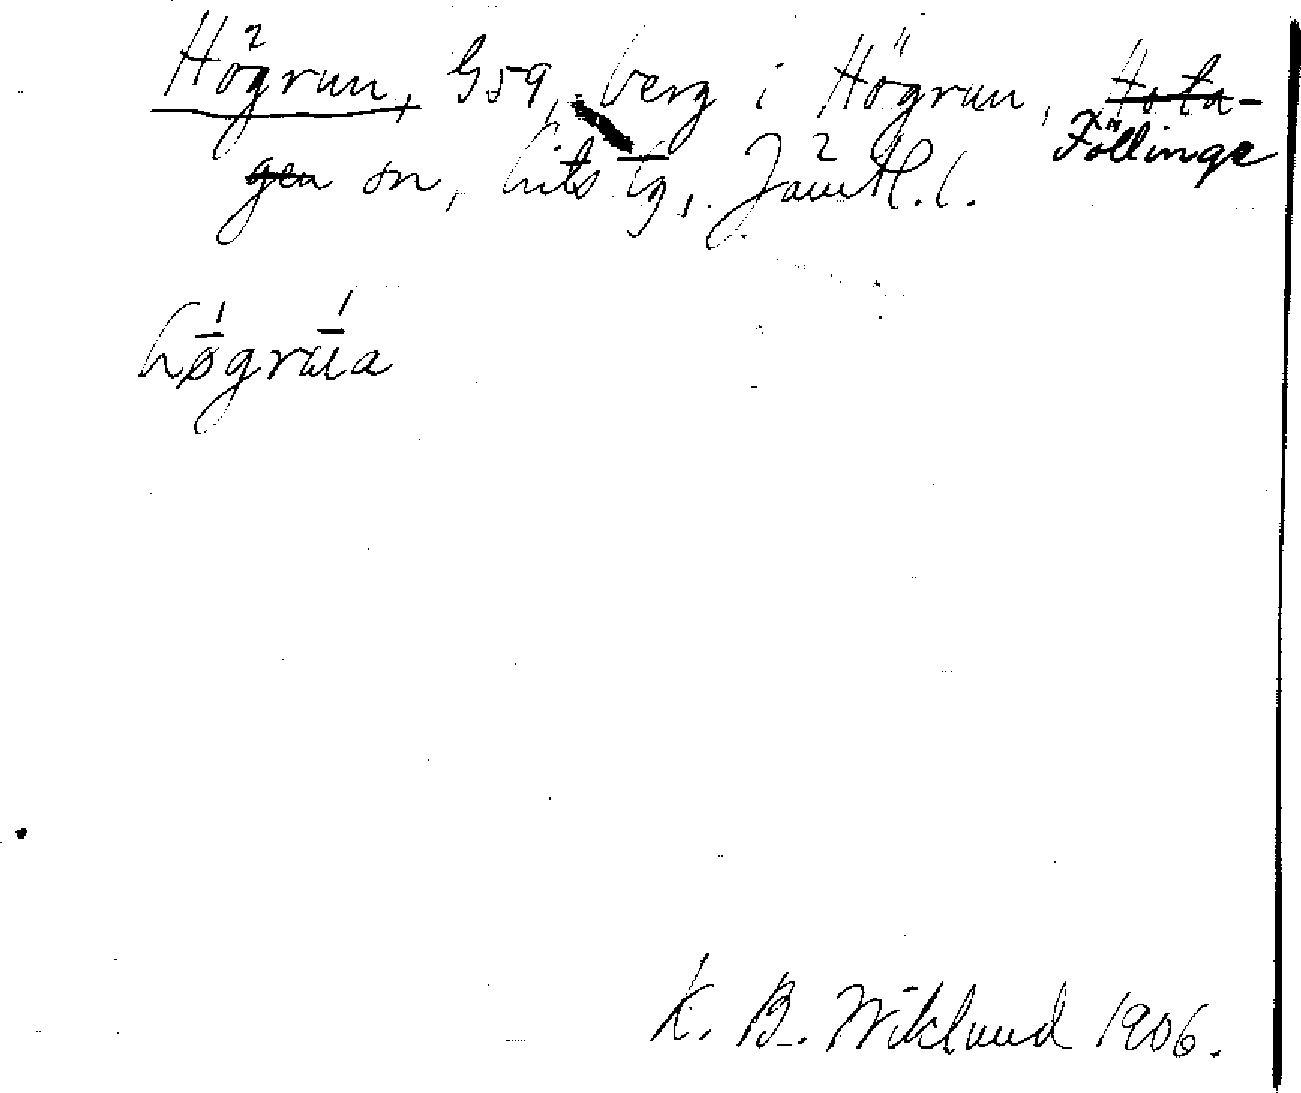 Högrun, 959, berg i Högrun, Hota-
Föllinge
gen sn, Lits tg, Jämtl. l.
høgrūa
K. B. Wiklund 1906.